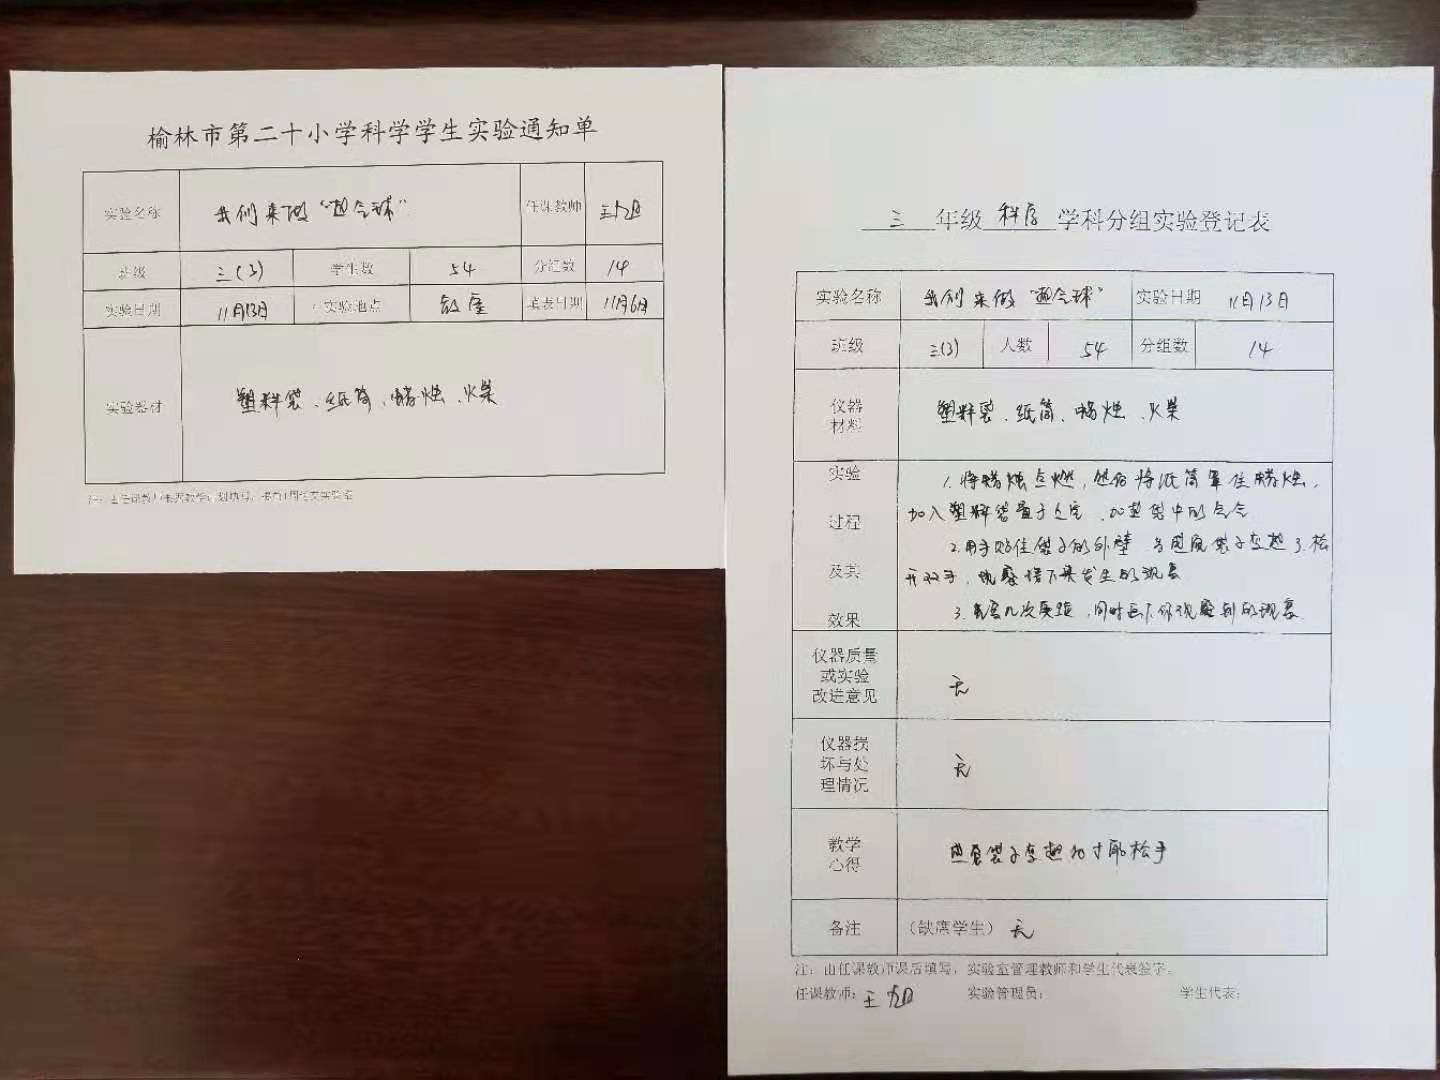 榆林市第二十小学科学学生实验通知单
实验名称 我们来做“热气球” 任课教师 王旭
班级 三(3) 学生数 54 分组数 14
实验日期 11月13日 实验地点 教室 填表日期 11月6日
实验器材 塑料袋、纸筒、蜡烛、火柴
三 年级 科学 学科分组实验登记表
实验名称 我们来做“热气球” 实验日期 11月13日
班级 三(3) 人数 54 分组数 14
仪器材料 塑料袋、纸筒、蜡烛、火柴
实验过程及其效果
1.将蜡烛点燃,然后将纸筒罩住蜡烛,
加入塑料袋 袋中的空气
2.用手贴住袋子的外壁 当感觉袋子变热 松
开双手,观察接下来发生的现象
3.多做几次实验,同时画下你观察到的现象
仪器质量或实验改进意见 无
仪器损坏与处理情况 无
教学心得 感觉袋子变热的时候松手
备注 (缺席学生) 无
注:由任课教师课后填写,实验室管理教师和学生代表签字。
任课教师:王旭 实验管理员: 学生代表: